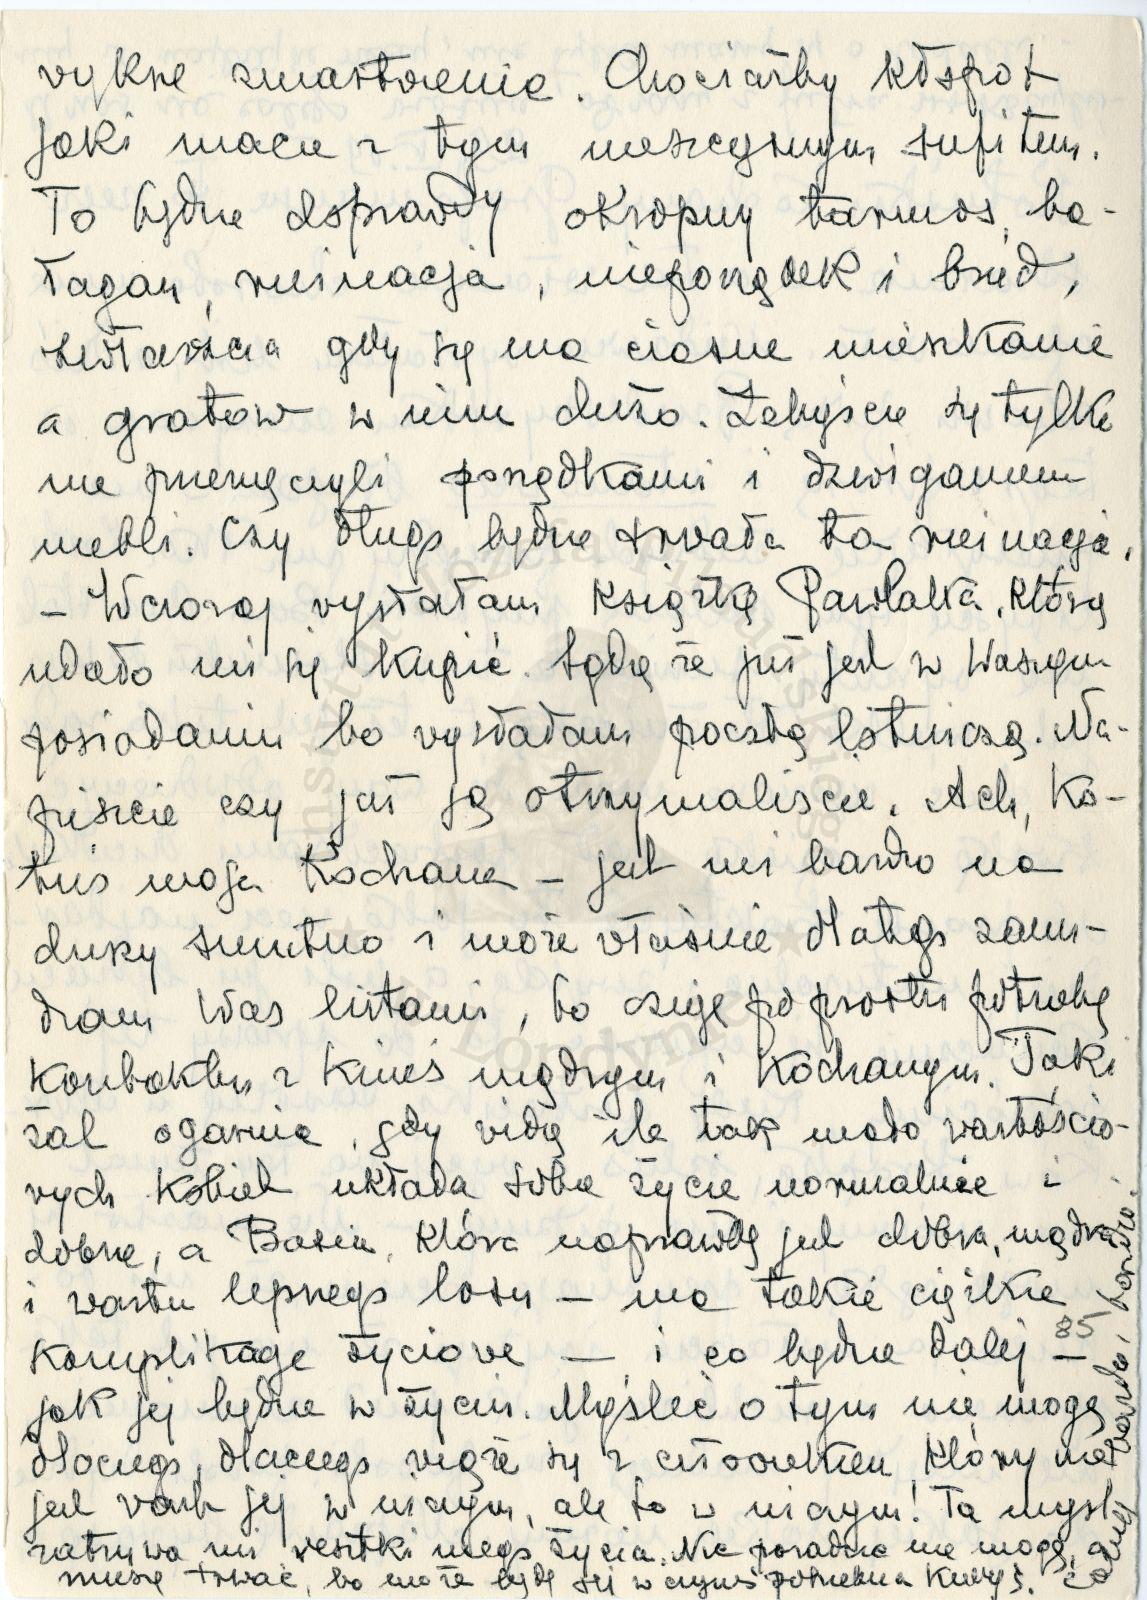 wykłe zmartwienie. Chociażby kłopot
jaki macie z tym nieszczęsnym sufitem.
To będzie doprawdy okropny tarmos, ba-
łagan, ruinacja, nieporządek i brud,
zwłaszcza gdy się ma ciasne mieszkanie
a gratów w nim dużo. Żebyście się tylko
nie przemęczyli porządkami i dźwiganiem
mebli. Czy długo będzie trwała ta ruinacja.
– Wczoraj wysłałam książkę Pawlaka, którą
udało mi się kupić. Sądzę że już jest w Waszym
posiadaniu bo wysłałam pocztą lotniczą. Na-
piszcie czy już ją otrzymaliście. Ach, Ko-
tuś moja Kochana – jest mi bardzo na
duszy smutno i może właśnie dlatego zamę-
dzam Was listami, bo czuję po prostu potrzebę
kontaktu z kimś mądrym i kochanym. Taki
żal ogarnia, gdy widzę ile tak mało wartościo-
wych kobiet układa sobie życie normalnie i
dobrze, a Basia, która naprawdę jest dobra, mądra
i warta lepszego losu – ma takie ciężkie
komplikacje życiowe – i co będzie dalej –
85
jak jej będzie w życiu. Myśleć o tym nie mogę
dlaczego, dlaczego wiąże się z człowiekiem który nie
jest wart jej w niczym, ale to w niczym! Ta myśl
zatruwa mi resztki mego życia. Nic poradzić nie mogę, a
muszę trwać, bo może będę jej w czymś potrzebna kiedyś.
bardzo, bardzo.